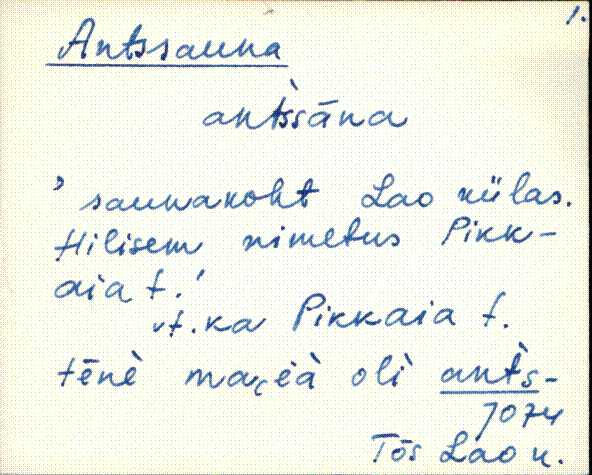 1.
Antssauna
antssāna
’ saunakoht Lao külas.
Hilisem nimetus Pikk-
aia t.’
vt. ka Pikkaia t.
tēnè oli ànts-
Tōs Lao k.